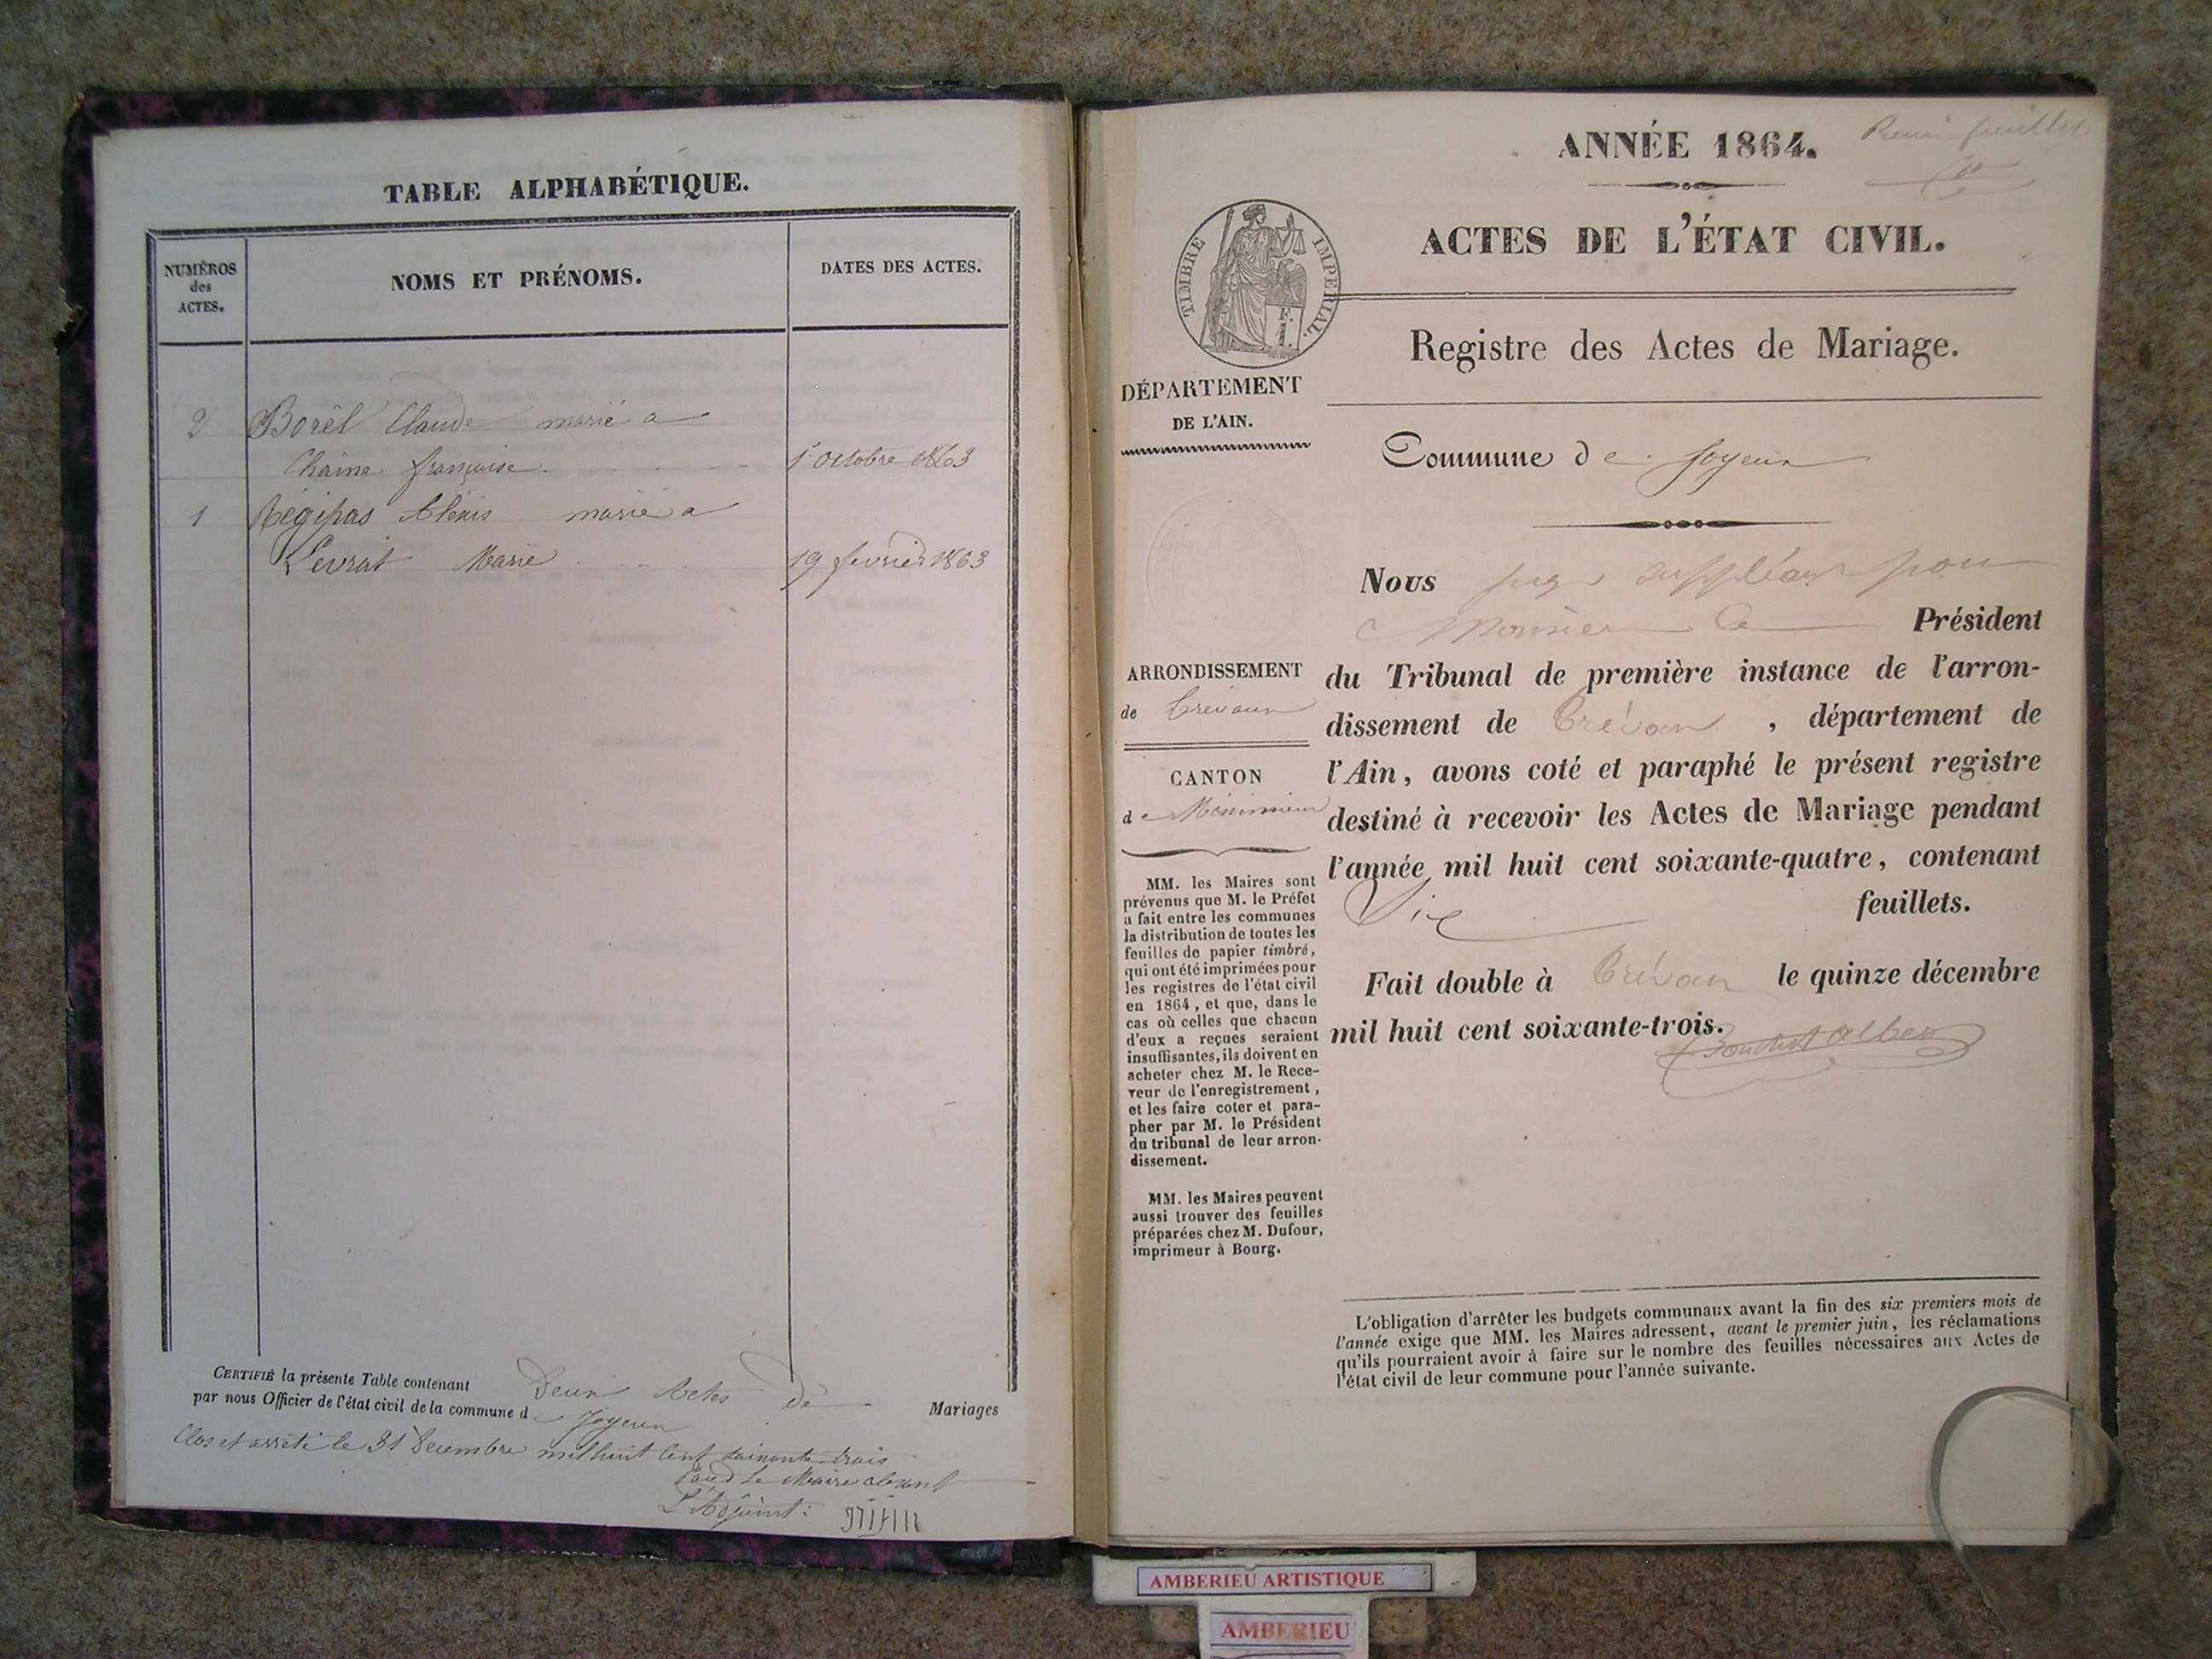 TABLE ALPHABÉTIQUE.
NUMÉROS
des
ACTES.
NOMS ET PRÉNOMS.
DATES DES ACTES.
2 Borêl Claude marié a
Chaine françoise 1 Octobre 1863
1 Régipas Alexis marié a
Levrat Marie 19 fevrier 1863
CERTIFIÉ la présente Table contenant Deux Actes de Mariages
par nous Officier de l'état civil de la commune de Joyeux
Clos et arrêté le 31 Decembre mil huit Cent soixante trois
Le Maire absent
L'Adjoint:
ANNÉE 1864.
feuillet
ACTES DE L'ÉTAT CIVIL.
TIMBRE IMPÉRIAL.
Registre des Actes de Mariage.
DÉPARTEMENT
DE L'AIN.
Commune de Joyeux
Nous juge suppléant pour
Monsieur le Président
du Tribunal de première instance de l'arron-
dissement de Trévoux, département de
l'Ain, avons coté et paraphé le présent registre
destiné à recevoir les Actes de Mariage pendant
l'année mil huit cent soixante-quatre, contenant
Six feuillets.
Fait double à Trévoux le quinze décembre
mil huit cent soixante-trois.
ARRONDISSEMENT
de Trévoux
CANTON
de Méximieux
MM. les Maires sont
prévenus que M. le Préfet
a fait entre les communes
la distribution de toutes les
feuilles de papier timbré,
qui ont été imprimées pour
les registres de l'état civil
en 1864, et que, dans le
cas où celles que chacun
d'eux a reçues seraient
insuffisantes, ils doivent en
acheter chez M. le Rece-
veur de l'enregistrement,
et les faire coter et para-
pher par M. le Président
du tribunal de leur arron-
dissement.
MM. les Maires peuvent
aussi trouver des feuilles
préparées chez M. Dufour,
imprimeur à Bourg.
L'obligation d'arrêter les budgets communaux avant la fin des six premiers mois de
l'année exige que MM. les Maires adressent, avant le premier juin, les réclamations
qu'ils pourraient avoir à faire sur le nombre des feuilles nécessaires aux Actes de
l'état civil de leur commune pour l'année suivante.
AMBERIEU ARTISTIQUE
AMBERIEU